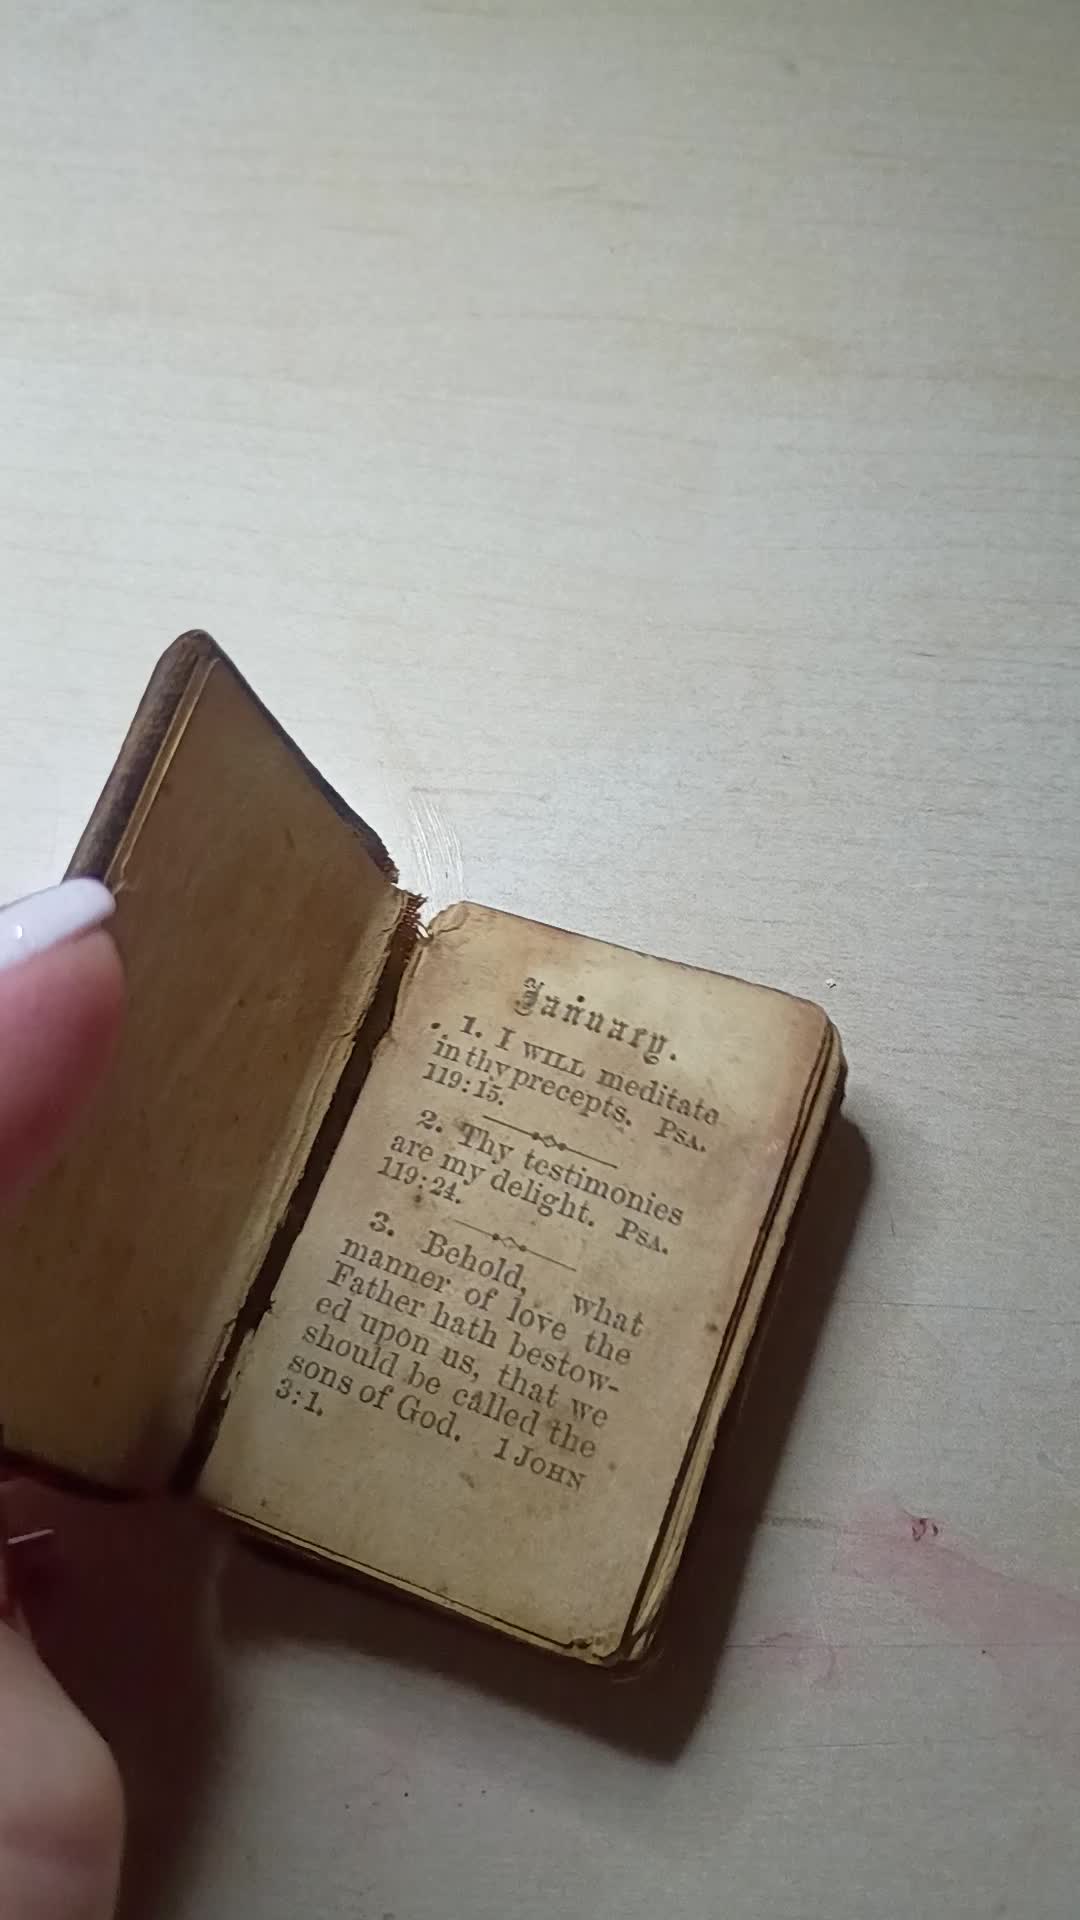 January.
1. I WILL meditate
in thy precepts. PSA.
119:15.
2. Thy testimonies
are my delight. PSA.
119:24.
3. Behold, what
manner of love the
Father hath bestow-
ed upon us, that we
should be called the
sons of God. 1 JOHN
3:1.